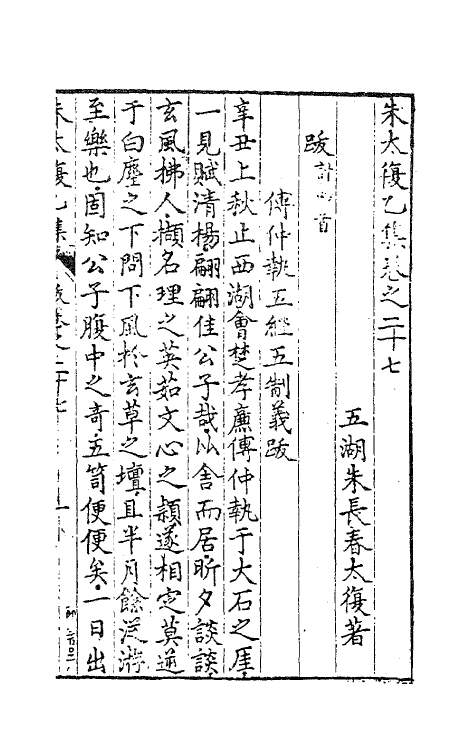 朱太復乙集卷之二十七
五湖朱長春太復著
跋計 首
傅仲執五經五制義跋
辛丑上秋止西湖會楚孝廉傅仲執于大石之厓
一見賦清楊翩翩佳公子哉以舍而居昕夕談談
玄風拂人擷名理之英茹文心之穎遂相定莫逆
于白麈之下問下風於玄草之壇且半月餘從游
至樂也固知公子腹中之奇五笥便便矣一日出
朱太復乙集